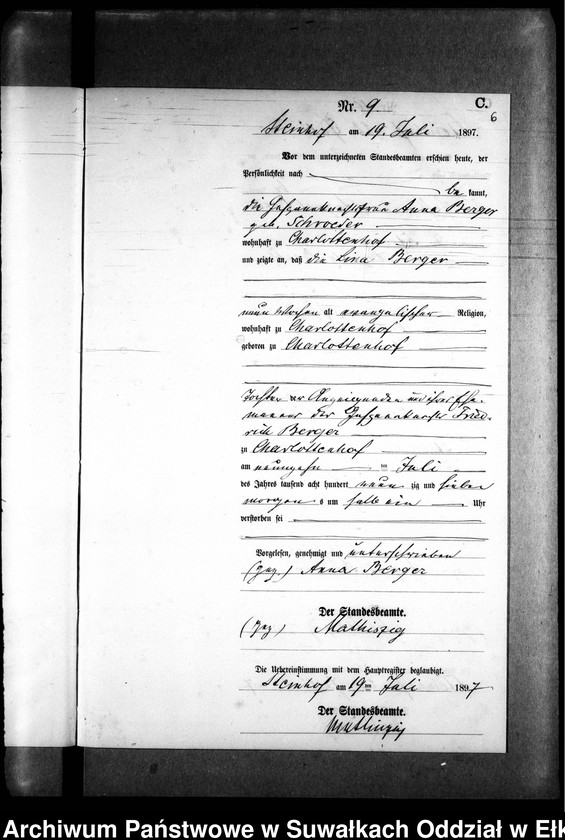 C.
Nr. 9.
6
Steinhof am 19. Juli 1897.
Vor dem unterzeichneten Standesbeamten erschien heute, der
Persönlichkeit nach
be kannt,
die Anna Berger
geb. Schroeder
wohnhaft zu Charlottenhof
und zeigte an, daß die Lina Berger
neun Wochen alt evangelischer Religion,
wohnhaft zu Charlottenhof
geboren zu Charlottenhof
Tochter der Anzeigenden und ihres Ehe-
mannes des Fried-
rich Berger
zu Charlottenhof
am neunzehn ten Juli
des Jahres tausend acht hundert neun zig und sieben
morgen s um halb ein Uhr
verstorben sei
Vorgelesen, genehmigt und unterschrieben
(gez) Anna Berger
Der Standesbeamte.
(gez) Mathiszig
Die Uebereinstimmung mit dem Hauptregister beglaubigt.
Steinhof am 19 ten Juli 1897
Der Standesbeamte.
Mathiszig
Archiwum Państwowe w Suwałkach Oddział w Ełk